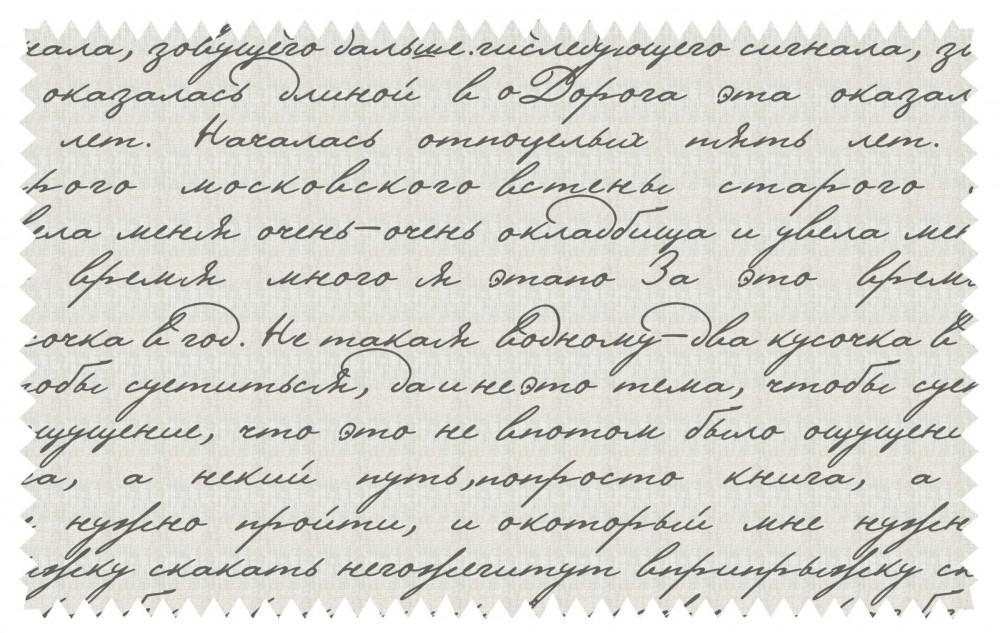 нала, зовущего дальше.гиследующего сигнала, зо
оказалась длиной в оДорога эта оказал
лет. Началась отпоцелых пять лет.
рого московского встены старого
вела меня очень-очень окладбища и увела мен
время много я этапо За это врем
сочка в год. Не такая водному-два кусочка в
тобы суетиться, да и неэто тема, чтобы суе
щущение, что это не впотом было ощущени
а, а некий путь,попросто книга, а
нужно пройти, и окоторый мне нужн
ыжку скакать негожегитут вприпрыжку ск